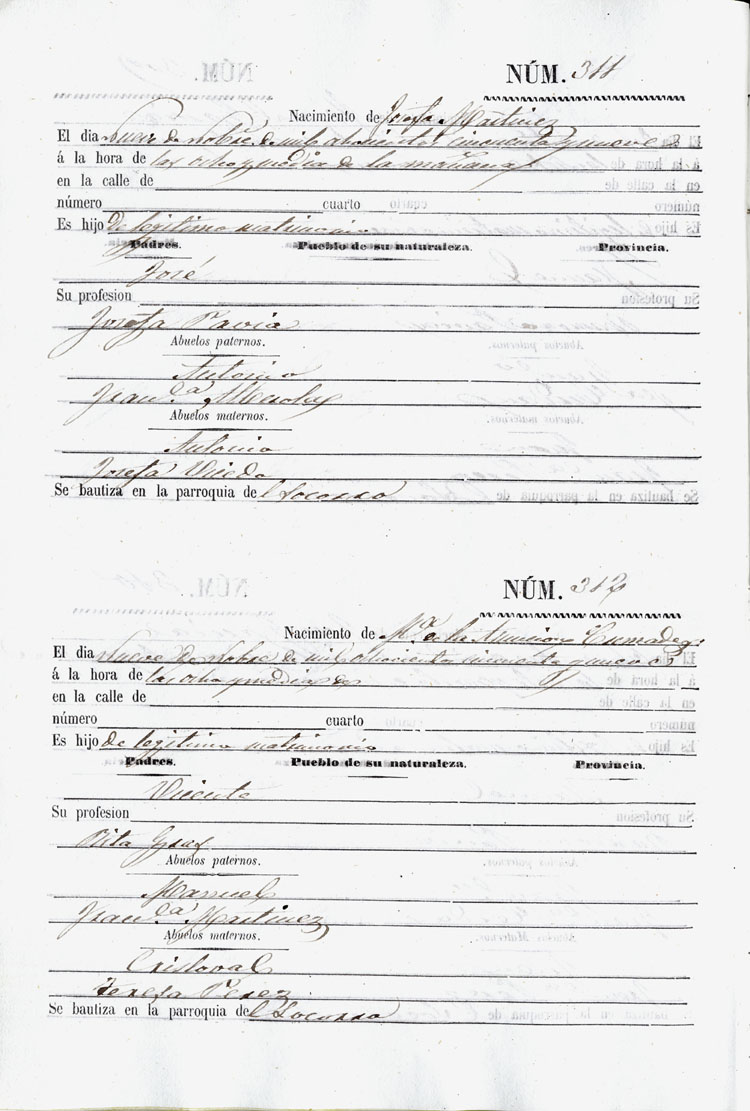 NÚM. 311
Nacimiento de Josefa Martinez
El dia Nueve de nobre. de mil ochocientos cincuenta y nueve
á la hora de las ocho y media de la mañana
en la calle de
número cuarto
Es hijo de legitimo matrimonio
Padres. Pueblo de su naturaleza. Provincia.
José
Su profesion
Josefa Pavia
Abuelos paternos.
Antonio
Franca.
Abuelos maternos.
Antonio
Josefa
Se bautiza en la parroquia del Socorro
NÚM. 312
Nacimiento de Ma. de la Asuncion
El dia Nueve de nobre de mil ochocientos cincuenta y nueve
á la hora de las ocho y media de
en la calle de
número cuarto
Es hijo de legitimo matrimonio
Padres. Pueblo de su naturaleza. Provincia.
Vicente
Su profesion
Rita Grau
Abuelos paternos.
Manuel
Franca. Martinez
Abuelos maternos.
Cristoval
Teresa Perez
Se bautiza en la parroquia del Socorro